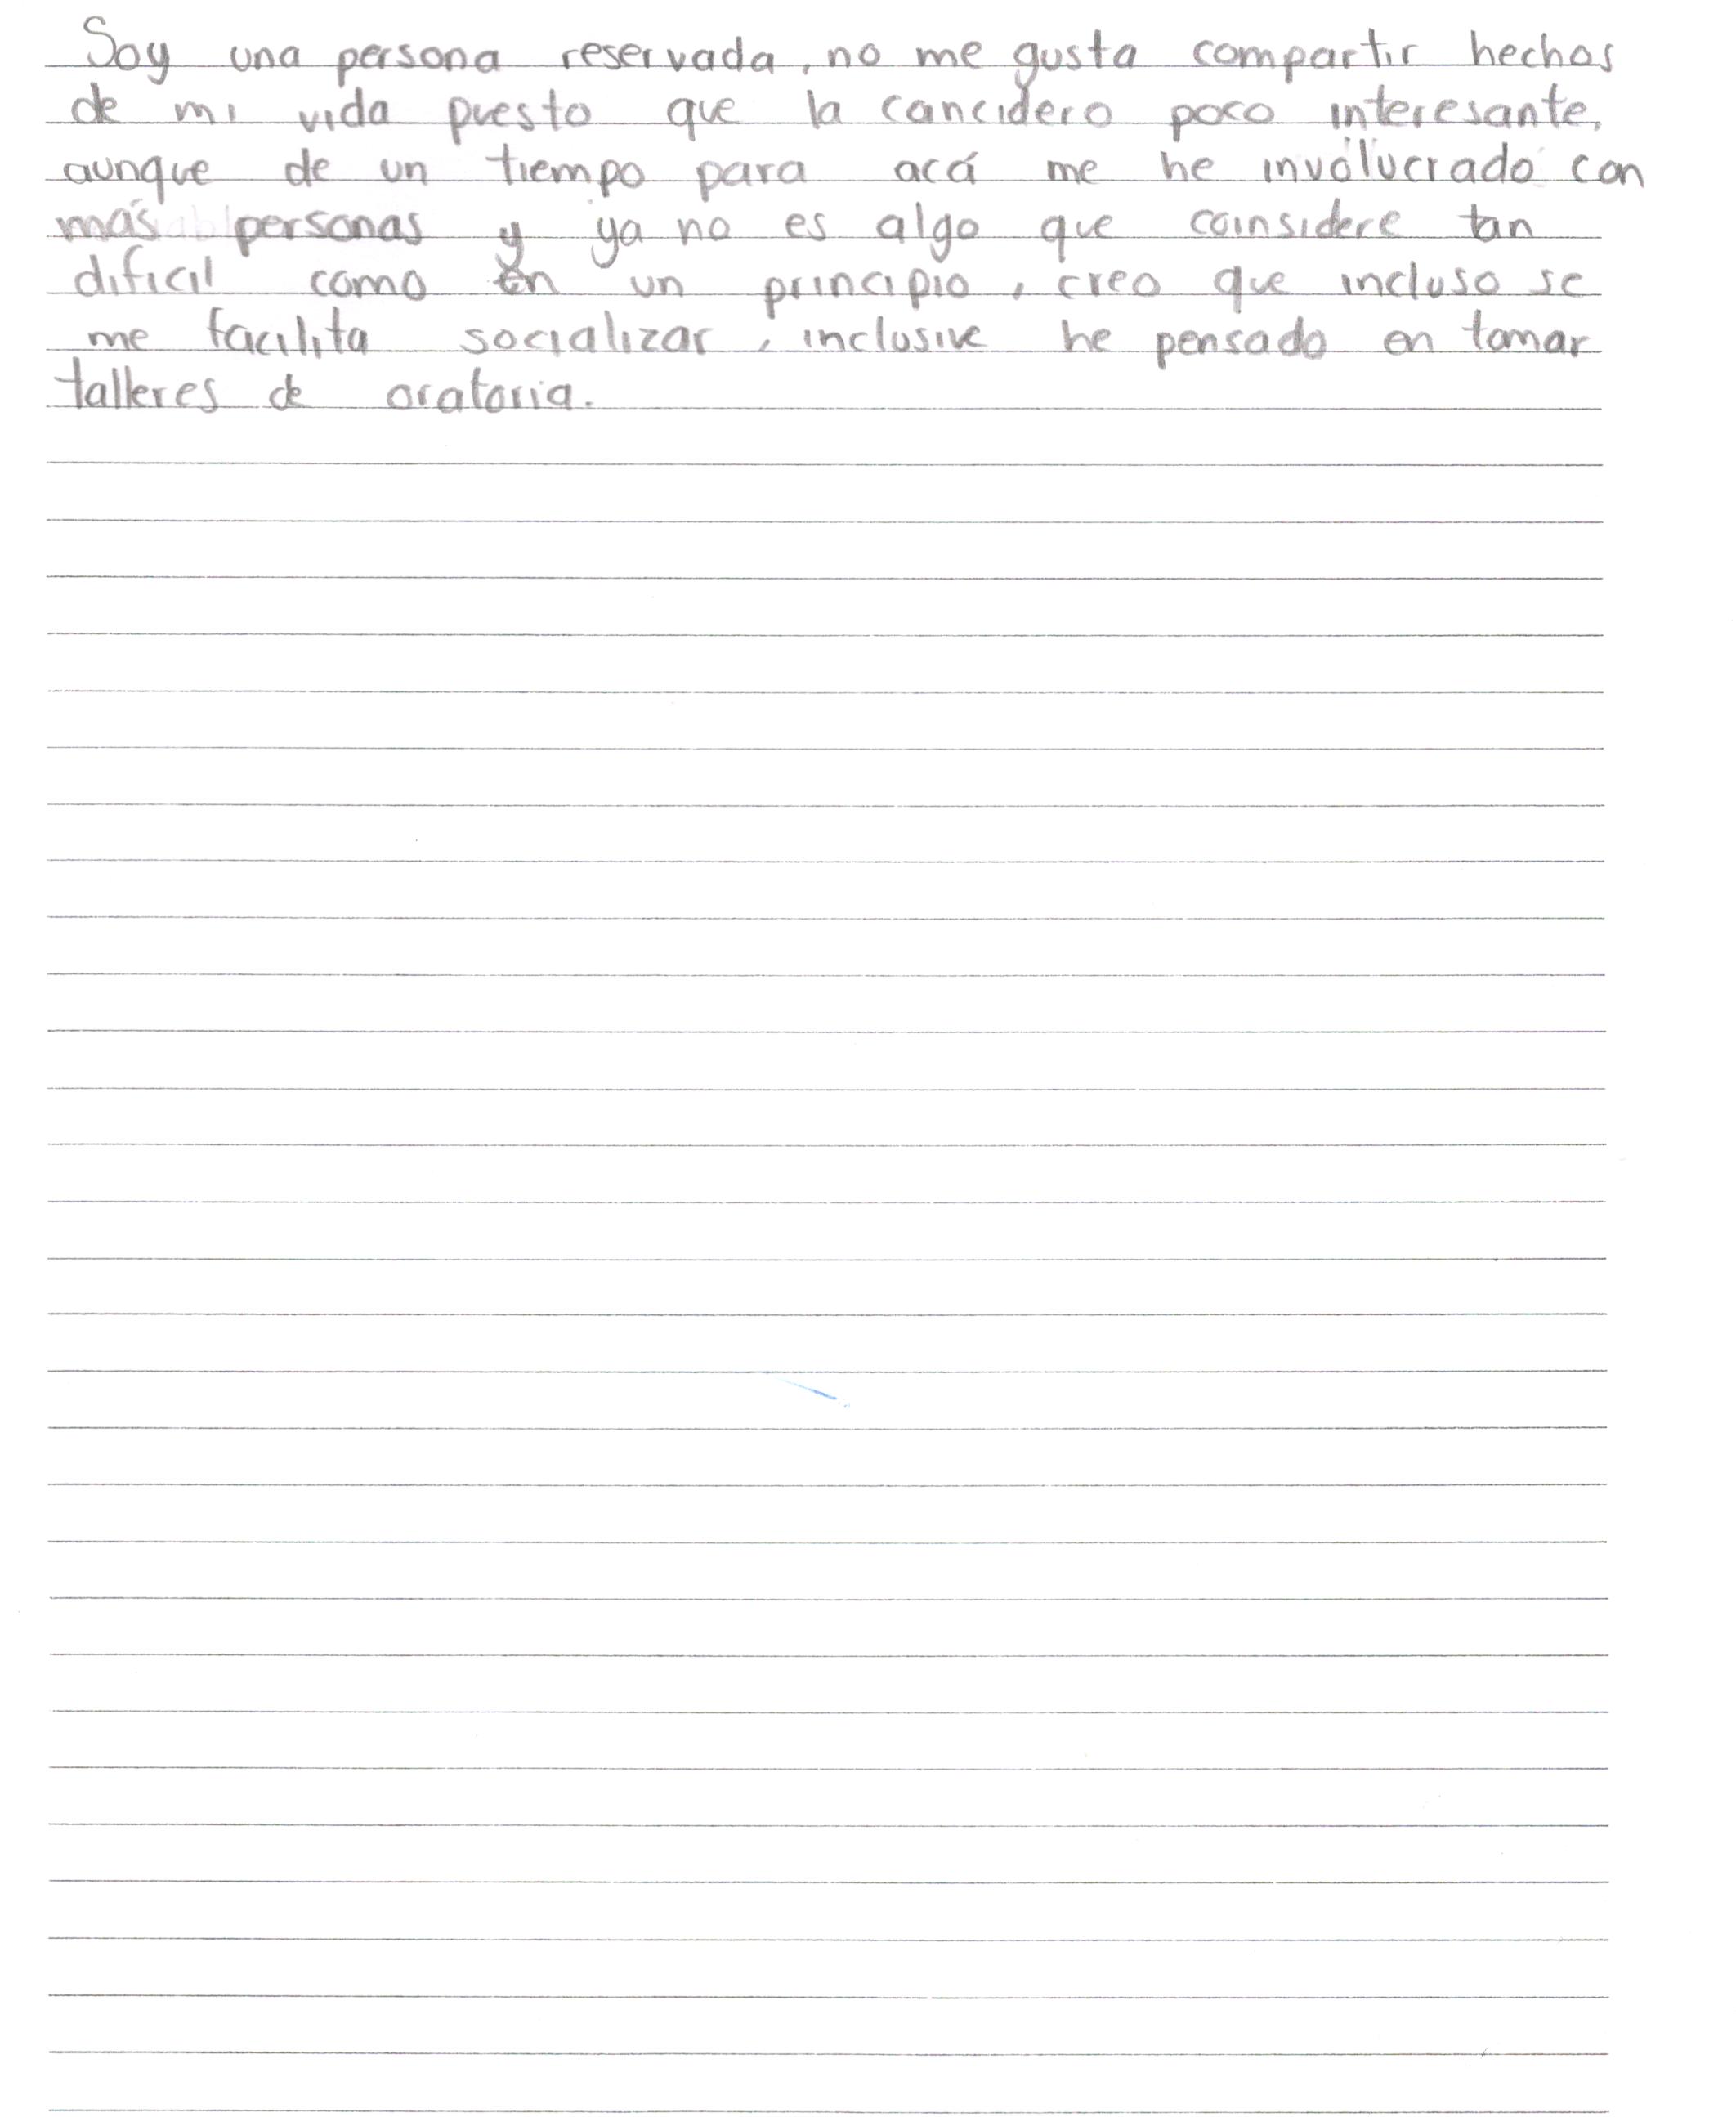 Soy una persona reservada, no me gusta compartir hechos
de mi vida puesto que la concidero poco interesante,
aunque de un tiempo para acá me he involucrado con
más personas y ya no es algo que coinsidere tan
dificil como en un principio, creo que incluso se
me facilita socializar, inclusive he pensado en tomar
talleres de oratoria.